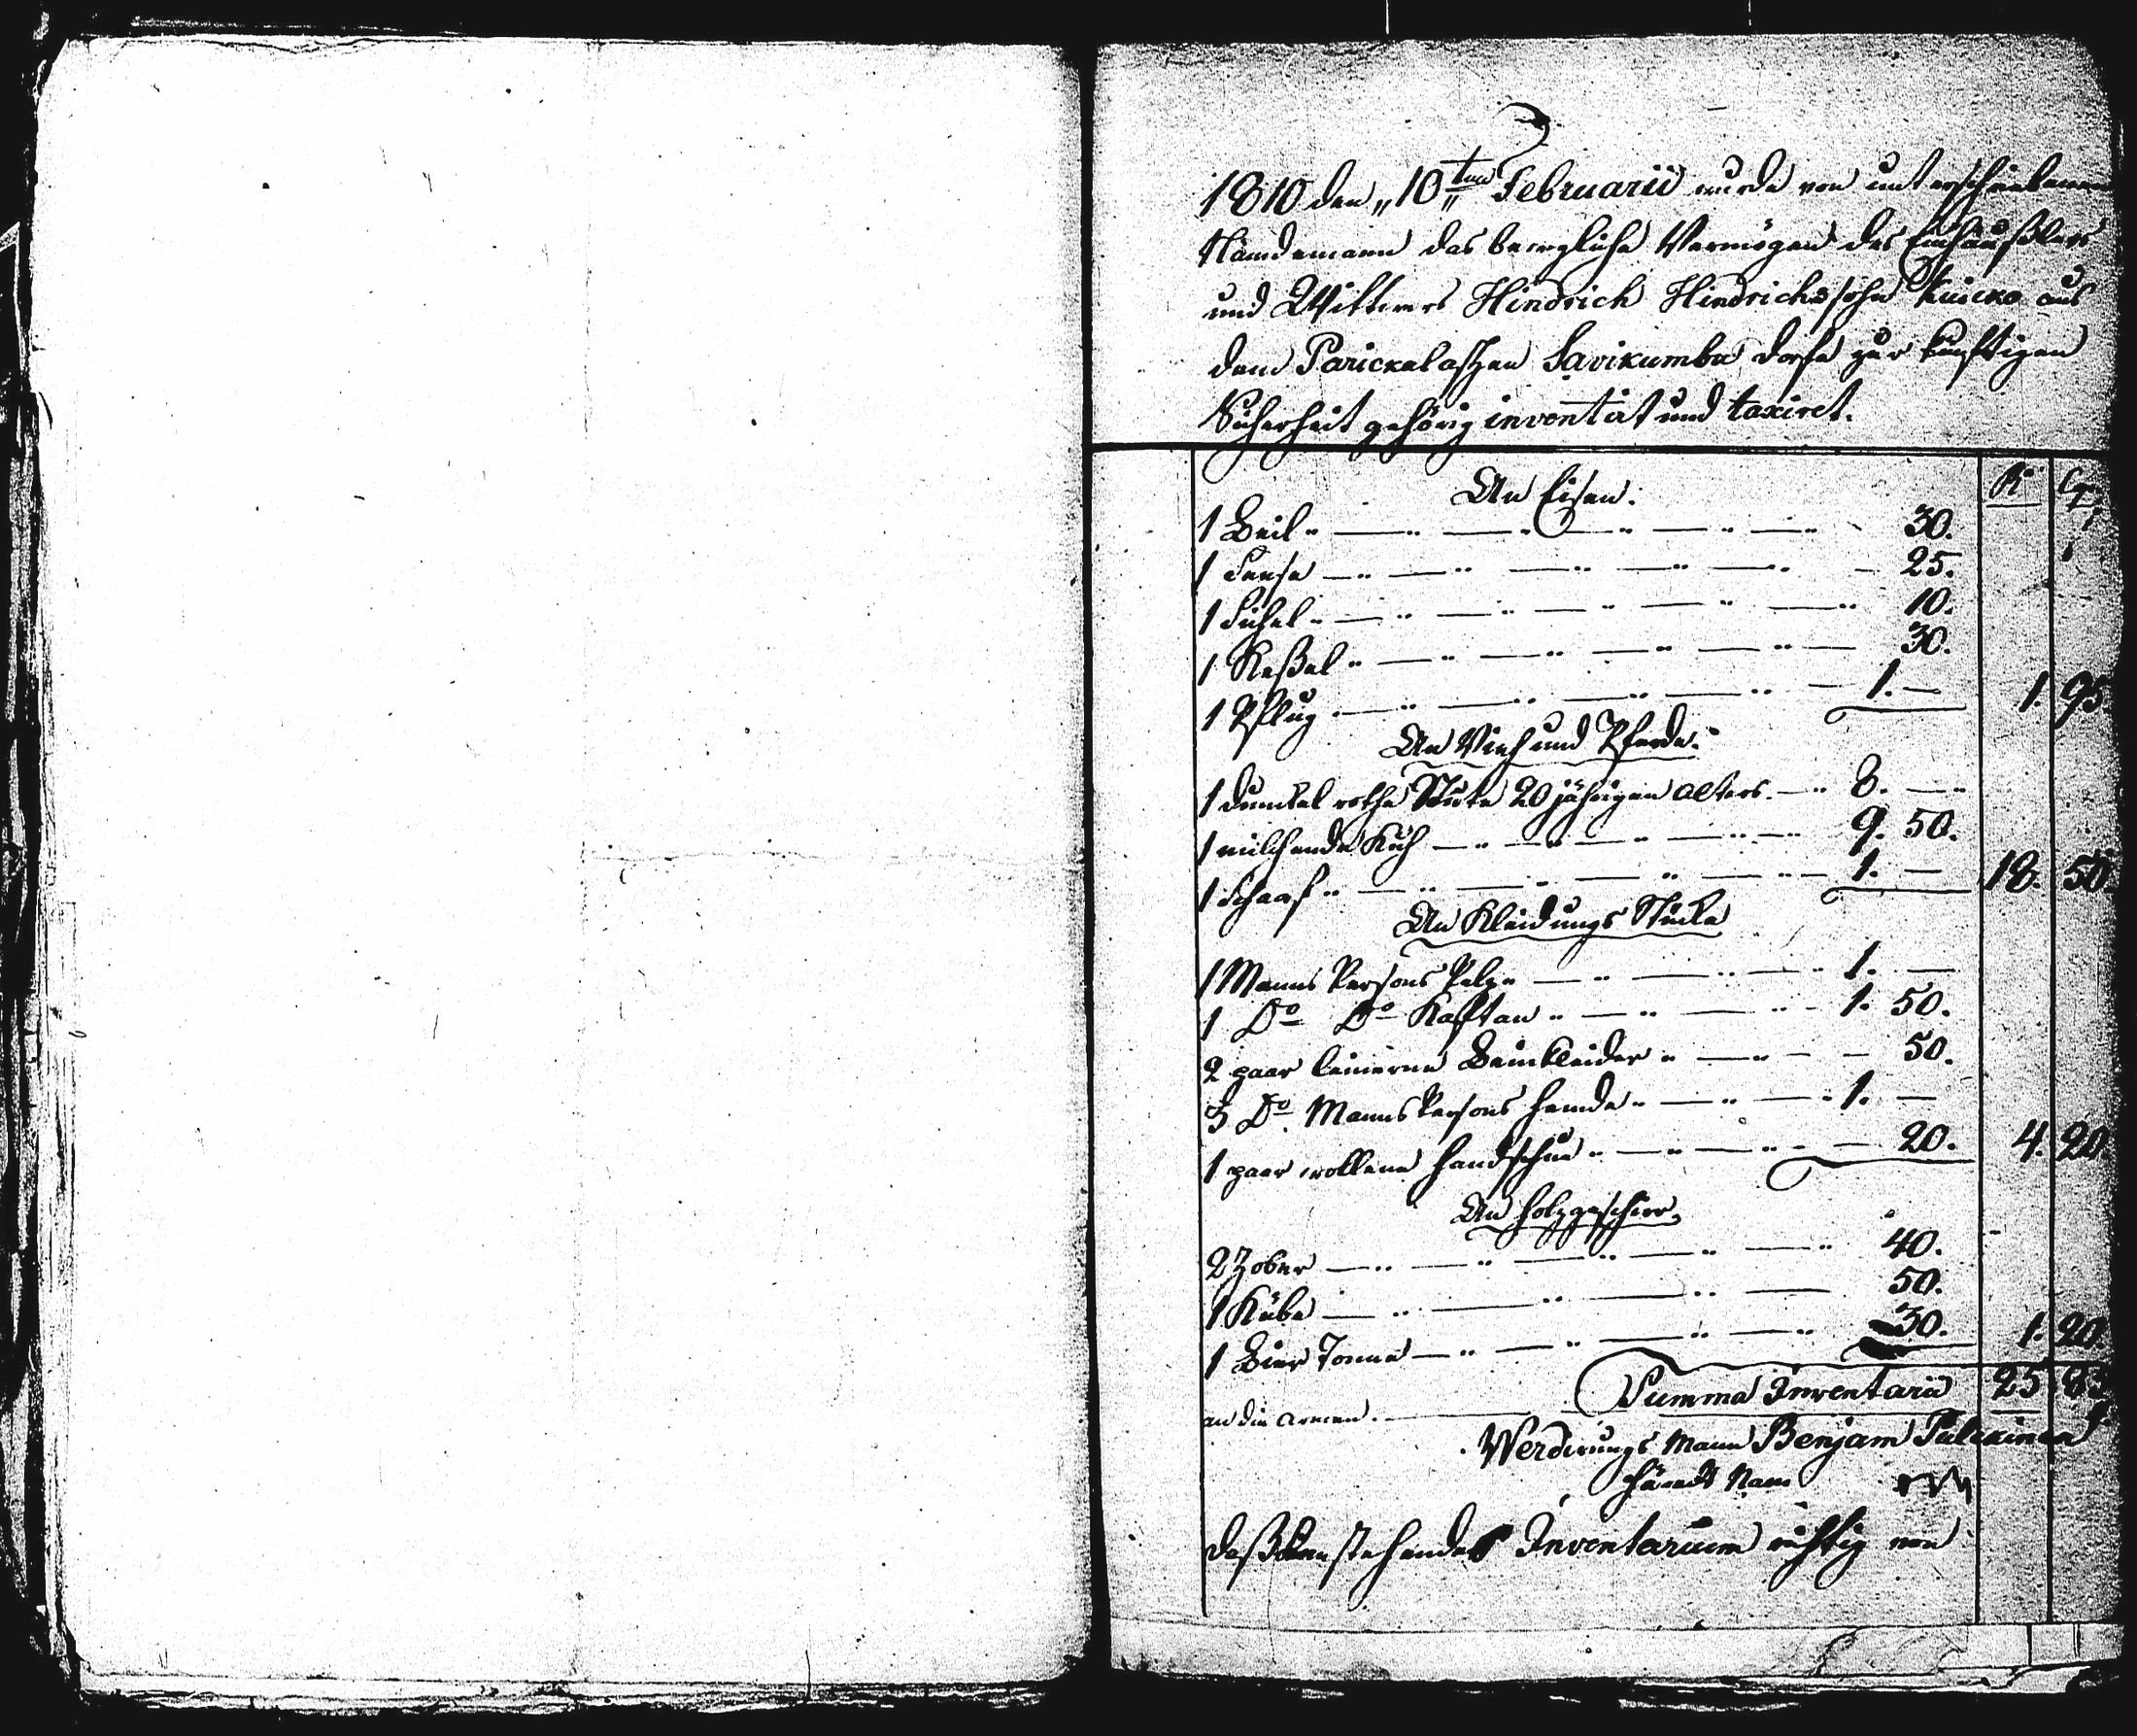 1810 den „10ten„ Februarii wurde von unterschriebenen
Nämdemann das bewegliche Vermögen des Einhäußlers
und Wittwers Hindrich Hindrichssohn aus
dem Parickalaschen Savikumba Dorfe zur künftigen
Sicherheit gehörig inventirt und taxiret.
An Eisen. R C
1 Beil 30.
1 Sense 25.
1 Sichel 10.
1 Keßel 30.
1 Pflug 1. — 1. 95
An Vieh und Pferde.
1 dunkel rothe Stute 20 jährigen alters. 8. —
1 milchende Kuh 9. 50.
1 Schaaf 1. — 18. 50
An Kleidungs Stücke
1 Manns Persons Pelz 1. —
1 Do Do Kaftan 1. 50.
2 paar leinerne Beinkleider 50.
3 Do Manns Persons Hemde 1. —
1 paar wollene Handschue 20. 4. 20
An Holzgeschirr
2 Zober 40.
1 Kübe 50.
1 Bier Tonne 30. 1. 20
Summa Inventarii 25
an die Armen.
Werdirungs Mann Benjam
Nam
daß Inventarium richtig von